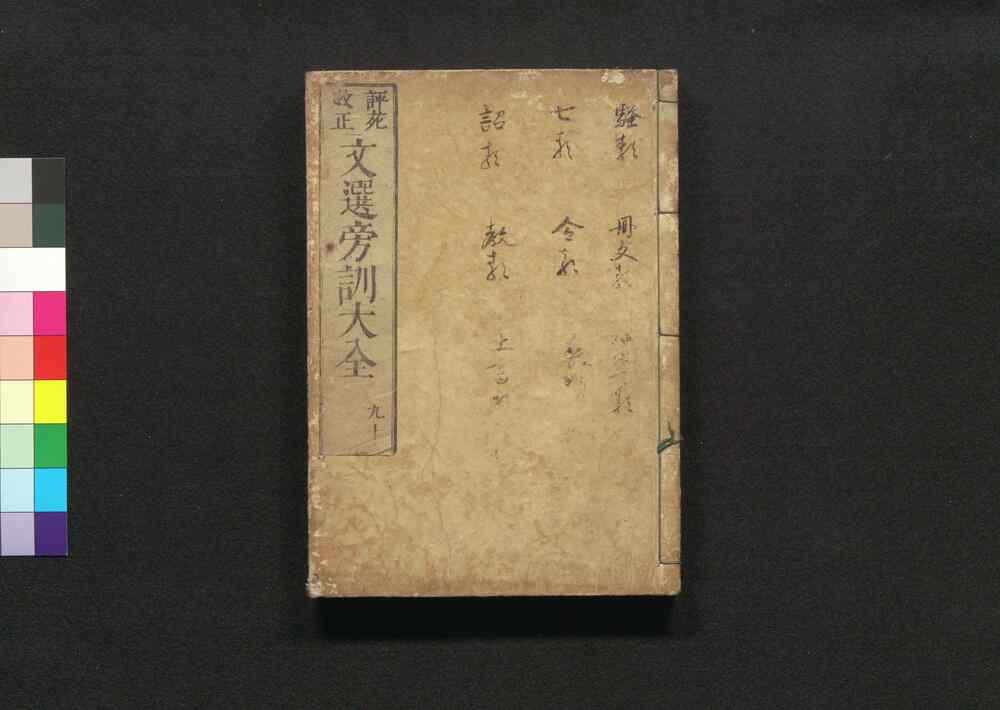 騷類
七類
詔類
冊文類
令類
教類
上書
評苑
改正
文選旁訓大全
九十